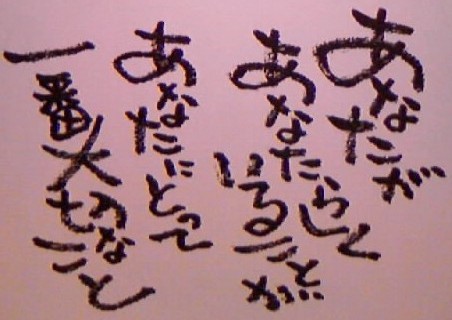 あなたが
あなたらしく
いることが
あなたにとって
一番大切なこと